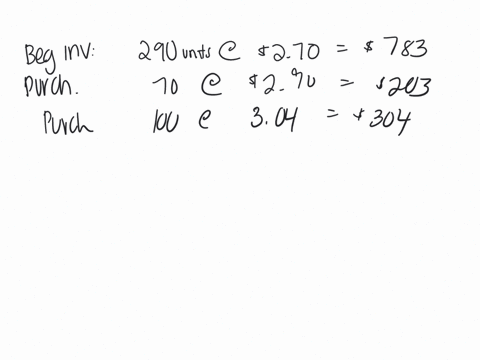 Beg Inv: 290 units @ $2.70 = $783
Purch. 70 @ $2.90 = $203
Purch 100 @ 3.04 = $304